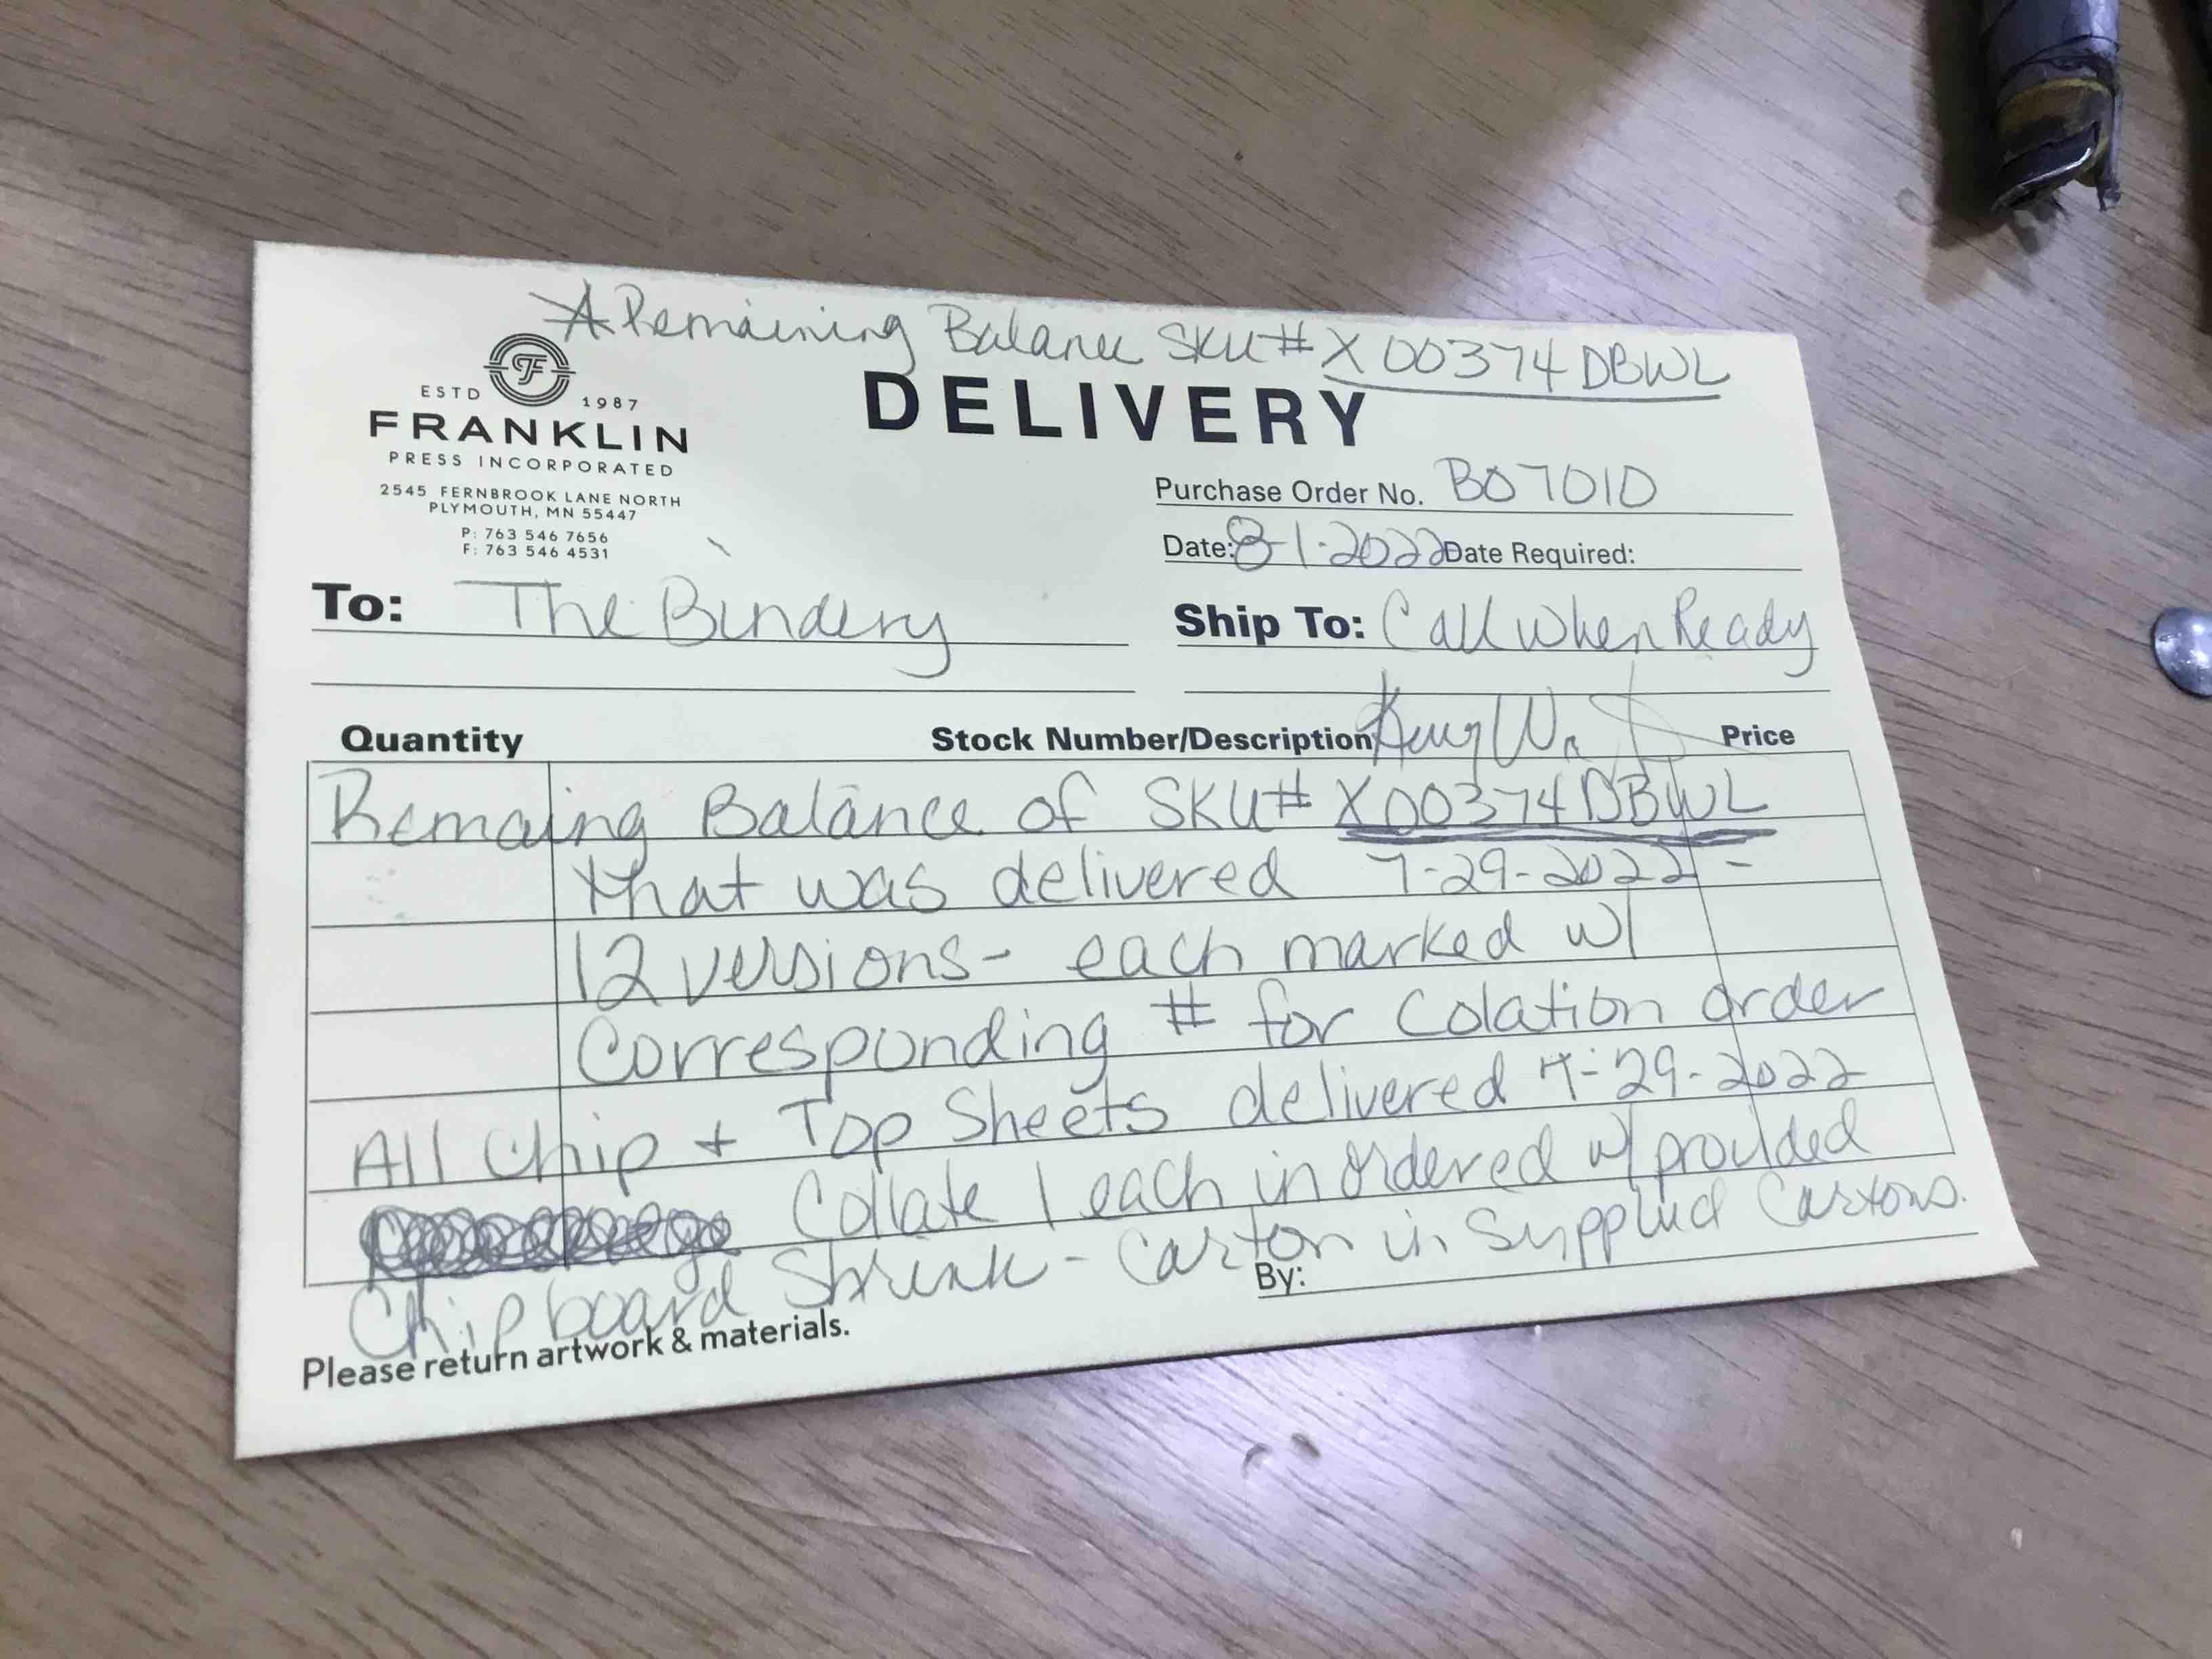 Remaining Balance SKU# X00374DBWL
ESTD 1987
FRANKLIN
PRESS INCORPORATED
2545 FERNBROOK LANE NORTH
PLYMOUTH, MN 55447
P: 763 546 7656
F: 763 546 4531
DELIVERY
Purchase Order No. B07010
Date: 8-1-2022 Date Required:
To: The Bindery
Ship To: Call When Ready
Quantity Stock Number/Description Price
Remaing Balance of SKU# X00374DBWL
that was delivered 7-29-2022 -
12 versions- each marked w/
Corresponding # for Colation order
All Chip + Top Sheets delivered 7-29-2022
Collate 1 each in ordered w/ provided
Chipboard Shrink - Carton in Supplied Cartons.
By:
Please return artwork & materials.